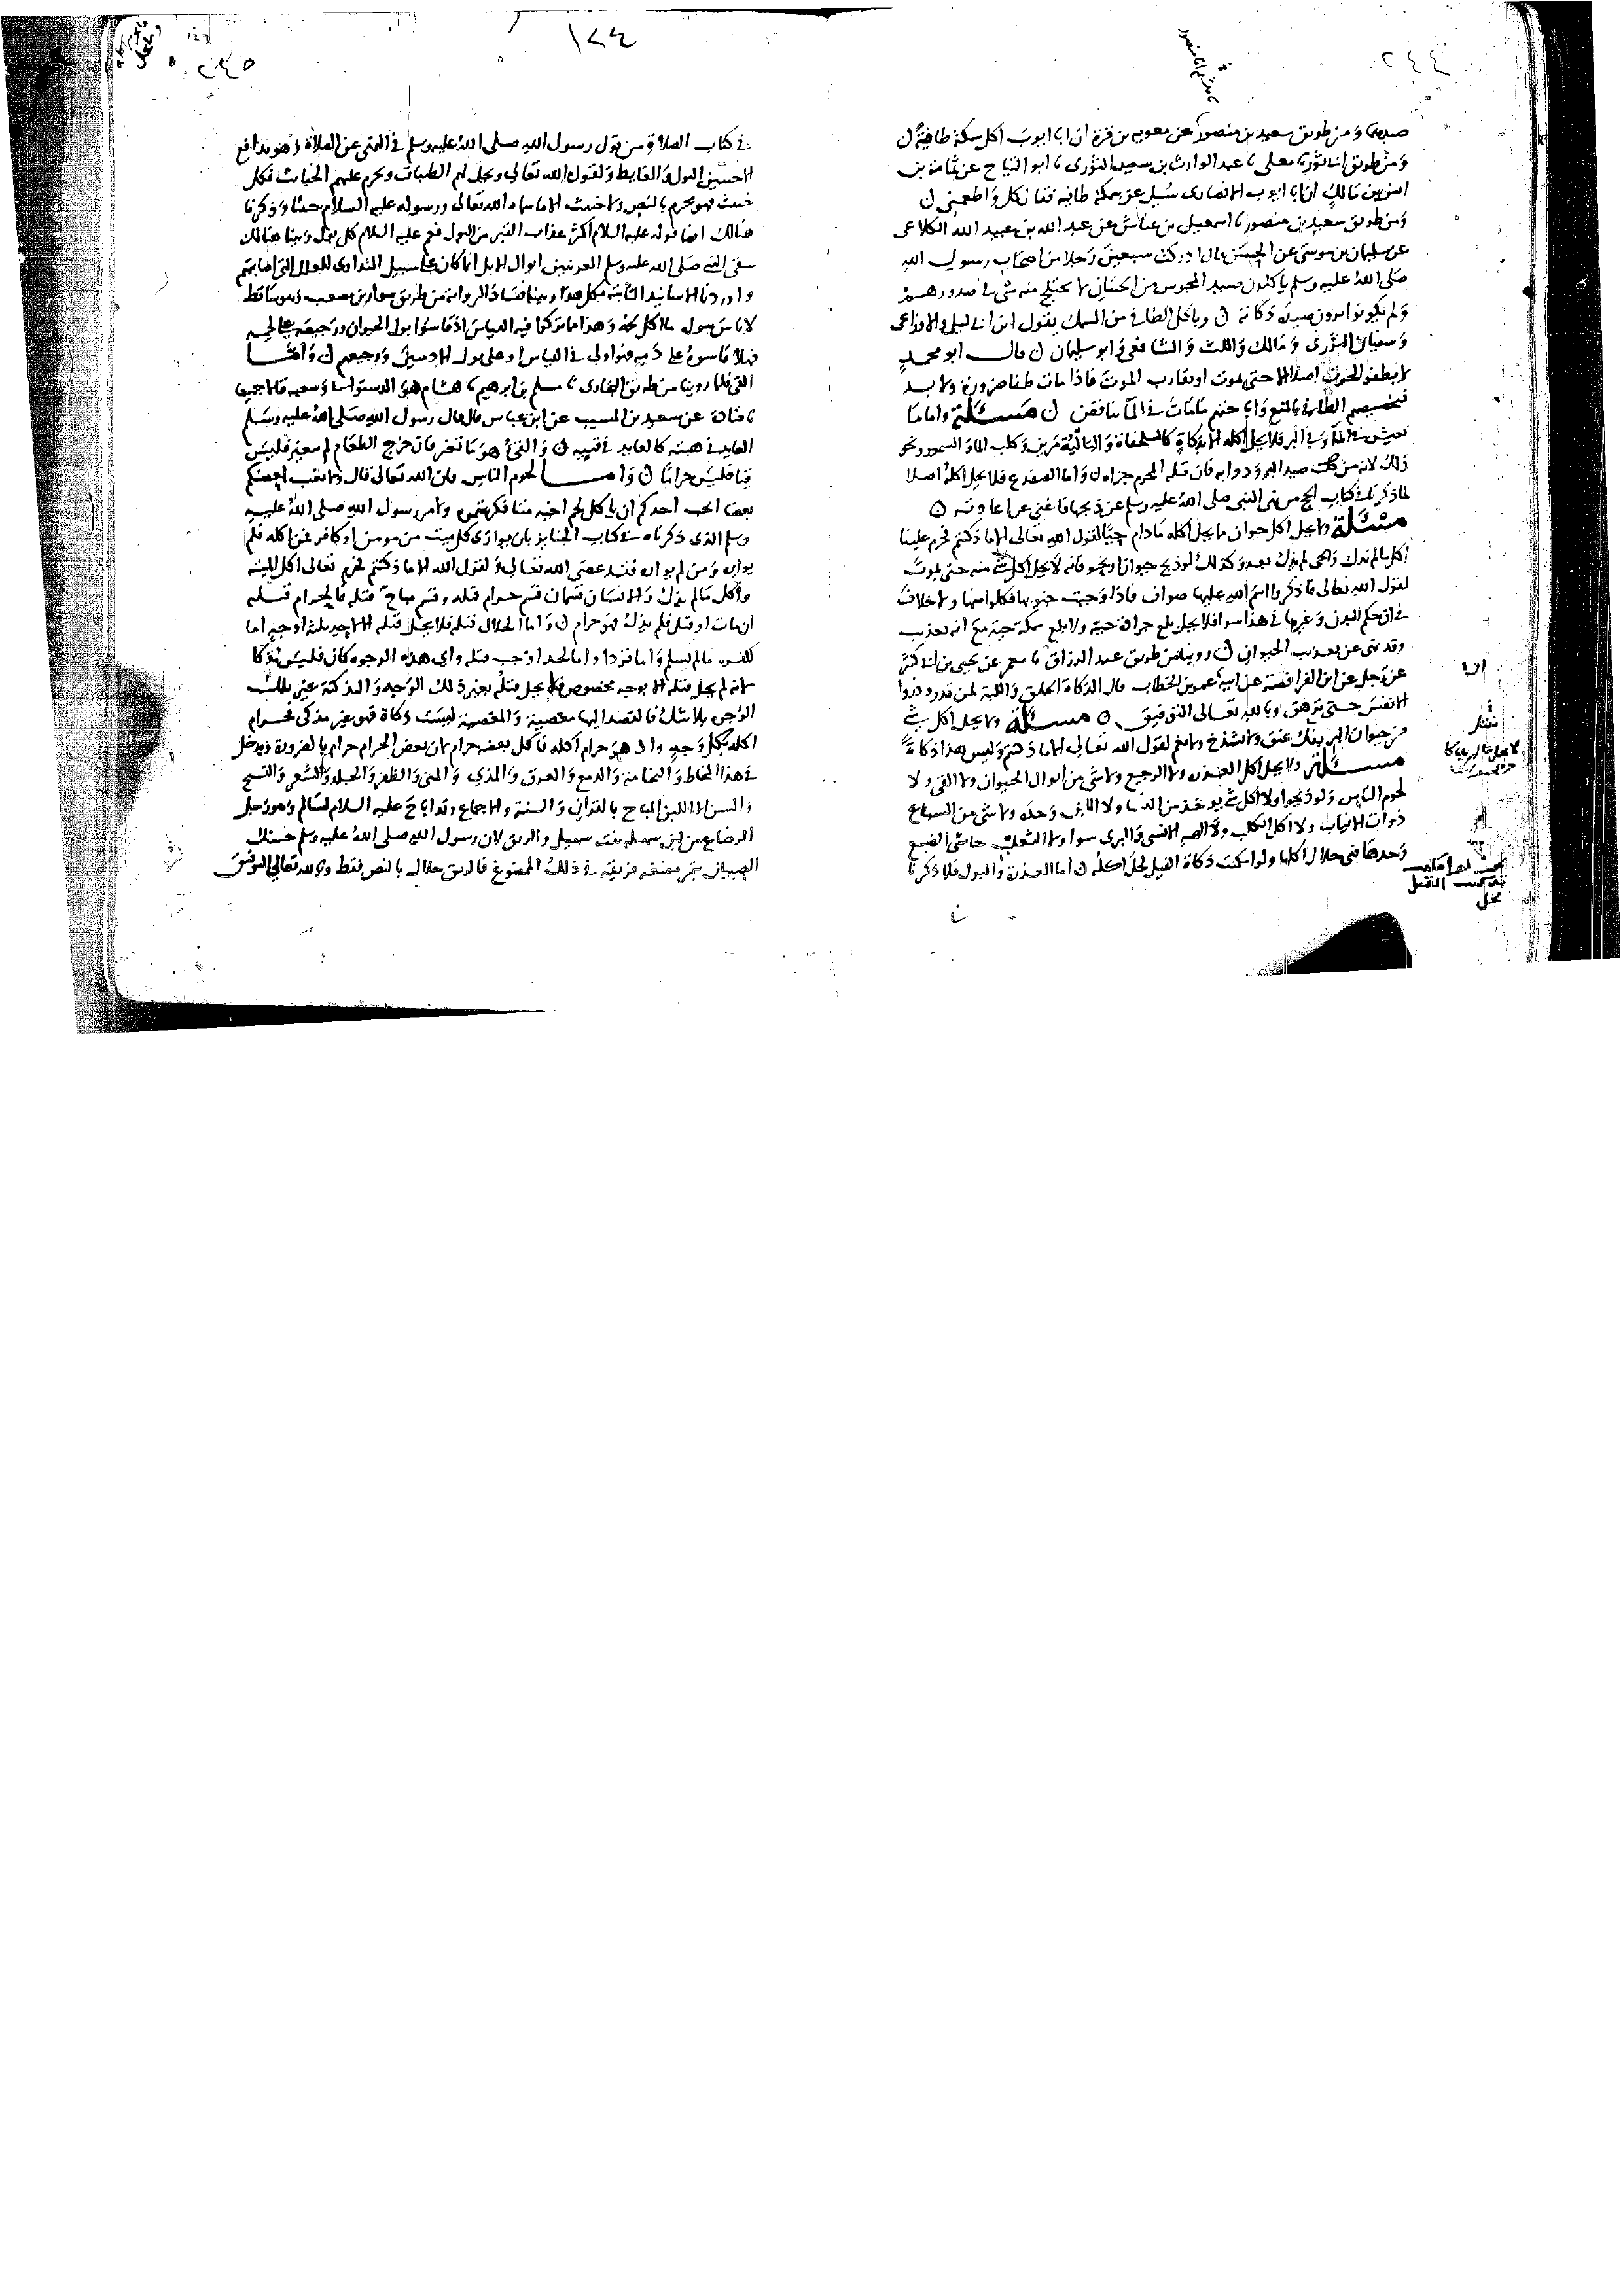 ٢٤٤
صيدها ومن طريق سعيد بن منصور عن معويه بن قرة ان ابا ايوب اكل سمكة طافية ن
ومن طريق ابي ثور نا معلى نا عبد الوارث بن سعيد التنوري نا ابو التياح عن ثمامة بن
انس بن مالك ان ابا ايوب الانصاري سئل عن سمكة طافيه فقال كل واطعمني ن
ومن طريق سعيد بن منصور نا اسمعيل بن عياش عن عبد الله بن عبيد الله الكلاعي
عن سليمان بن موسى عن الحسن قال ادركت سبعين رجلا من اصحاب رسول الله
صلى الله عليه وسلم ياكلون صيد المجوس من الحيتان لا يختلج منه شي في صدورهم
ولم يكونوا يرون صيده ذكاته ن وياكل الطافي من السمك يقول ابن ابي ليلى والاوزاعي
وسفيان الثوري ومالك والليث والشافعي وابو سليمان ن قال ابو محمد
لا يطفو الحوت اصلا الا حتى يموت او يقارب الموت فاذا مات طفا ضرورة ولا بد
فتخصيصهم الطافي بالمنع واباحتهم ما مات في الما تناقض ن مسئلة واما ما
يعيش في الما وفي البر فلا يحل اكله الا بذكاة كالسلحفاة والبالنية مرين وكلب الما والسمور ونحو
ذلك لانه من صيد البر ودوابه فان قتله المحرم جزاه ن واما الضفدع فلا يحل اكله اصلا
لما ذكرنا في كتاب الحج من نهي النبي صلى الله عليه وسلم عن ذبحها فاغنى عن اعادته ن
مسئلة ولا يحل اكل حيوان مما يحل اكله ما دام حيا لقول الله تعالى الا ما ذكيتم فحرم علينا
اكل ما لم نذك والحي لم يذك بعد وكذلك لو ذبح حيوان ونحو فانه لا يحل اكل شي منه حتى يموت
لقول الله تعالى فاذكروا اسم الله عليها صواف فاذا وجبت جنوبها فكلوا منها ولا خلاف
في ان حكم البدن وغيرها في هذا سوا فلا يحل بلع جرادة حية ولا بلع سمكة حية مع انه تعذيب
وقد نهي عن تعذيب الحيوان ن روينا من طريق عبد الرزاق نا معمر عن يحيى بن ابي كثير
عن رجل عن ابن الفرافصة عن ابيه عمر بن الخطاب قال الذكاة الحلق واللبة لمن قدر وذروا
الانفس حتى تزهق وبالله تعالى التوفيق ن مسئلة ولا يحل اكل شي
من حيوان البر بفتل عنق ولا بشدخ ولا بغم لقول الله تعالى الا ما ذكيتم وليس هذا ذكاة
مسئلة ولا يحل اكل العذرة ولا الرجيع ولا شي من ابوال الحيوان ولا القي ولا
لحوم الناس ولو ذبحوا ولا اكل شي يوخذ من الدنيا ولا اللبن وحده ولا شي من السباع
ذوات الانياب ولا اكل الكلب ولا الهر الانسي والبري سوا ولا الثعلب حاشى الضبع
وحدها فهي حلال اكلها ولو امكنت ذكاة الفيل لحل اكله ن اما العذرة والبول فلما ذكرنا
في
١٢٤
٢٤٥
في كتاب الصلاة من قول رسول الله صلى الله عليه وسلم في النهي عن الصلاة وهو يدافع
الاخبثين البول والغايط ولقول الله تعالى ويحل لهم الطيبات ويحرم عليهم الخبايث فكل
خبيث فهو محرم بالنص ولا خبيث الا ما سماه الله تعالى ورسوله عليه السلام خبيثا وذكرنا
هنالك ايضا قوله عليه السلام اكثر عذاب القبر من البول فعم عليه السلام كل بول وبينا هنالك
سقي النبي صلى الله عليه وسلم العرنيين ابوال الابل انما كان على سبيل التداوي للعلل التي اصابتهم
واوردنا الاسانيد الثابتة بكل هذا وبينا فساد الرواية من طريق سوار بن مصعب وهو ساقط
لا باس ببول ما اكل لحمه وهذا مما تركوا فيه القياس اذ قاسوا بول الحيوان ورجيعه على لحمه
فهلا قاسوه على دمه فهو اولى في القياس او على بول الادميين ورجيعهم ن واما
القي فلما روينا من طريق البخاري نا مسلم بن ابرهيم نا هشام هو الدستواي وشعبه قالا جميعا
نا قتادة عن سعيد بن المسيب عن ابن عباس قال قال رسول الله صلى الله عليه وسلم
العايد في هبته كالعايد في قييه ن والقي هو ما تغير فان خرج الطعام لم يتغير فليس
قيا فليس حراما ن واما لحوم الناس فان الله تعالى قال ولا يغتب بعضكم
بعضا ايحب احدكم ان ياكل لحم اخيه ميتا فكرهتموه ولامر رسول الله صلى الله عليه
وسلم الذي ذكرناه في كتاب الجنايز بان يوارى كل ميت من مومن او كافر فمن اكله فلم
يواره ومن لم يواره فقد عصى الله تعالى ولقول الله الا ما ذكيتم فحرم تعالى اكل الميته
واكل ما لم يذك والانسان قسمان قسم حرام قتله وقسم مباح قتله فالحرام قتله
ان مات او قتل فلم يذك فهو حرام ن واما الحلال قتله فلا يحل قتله الا لاحد ثلثة اوجه اما
لكفره ما لم يسلم واما قودا واما لحد اوجب قتله واي هذه الوجوه كان فليس مذكا
لانه لم يحل قتله الا بوجه مخصوص فلا يحل قتله بغير ذلك الوجه والتذكية غير تلك
الوجوه بلا شك فالقصد اليها معصية والمعصية ليست ذكاة فهو غير مذكى فحرام
اكله بكل وجه واذ هو حرام اكله فاكل بعضه حرام لان بعض الحرام حرام بالضرورة ويدخل
في هذا المخاط والنخامة والدمع والعرق والمذي والمني والظفر والجلد والشعر والقيح
والسن الا اللبن المباح بالقران والسنة والاجماع وقد اباح عليه السلام لسالم وهو رجل
الرضاع من لبن سهله بنت سهيل والريق لان رسول الله صلى الله عليه وسلم حنك
الصبيان بتمر مضغه فريقه في ذلك الممضوغ فالريق حلال بالنص فقط وبالله تعالى التوفيق